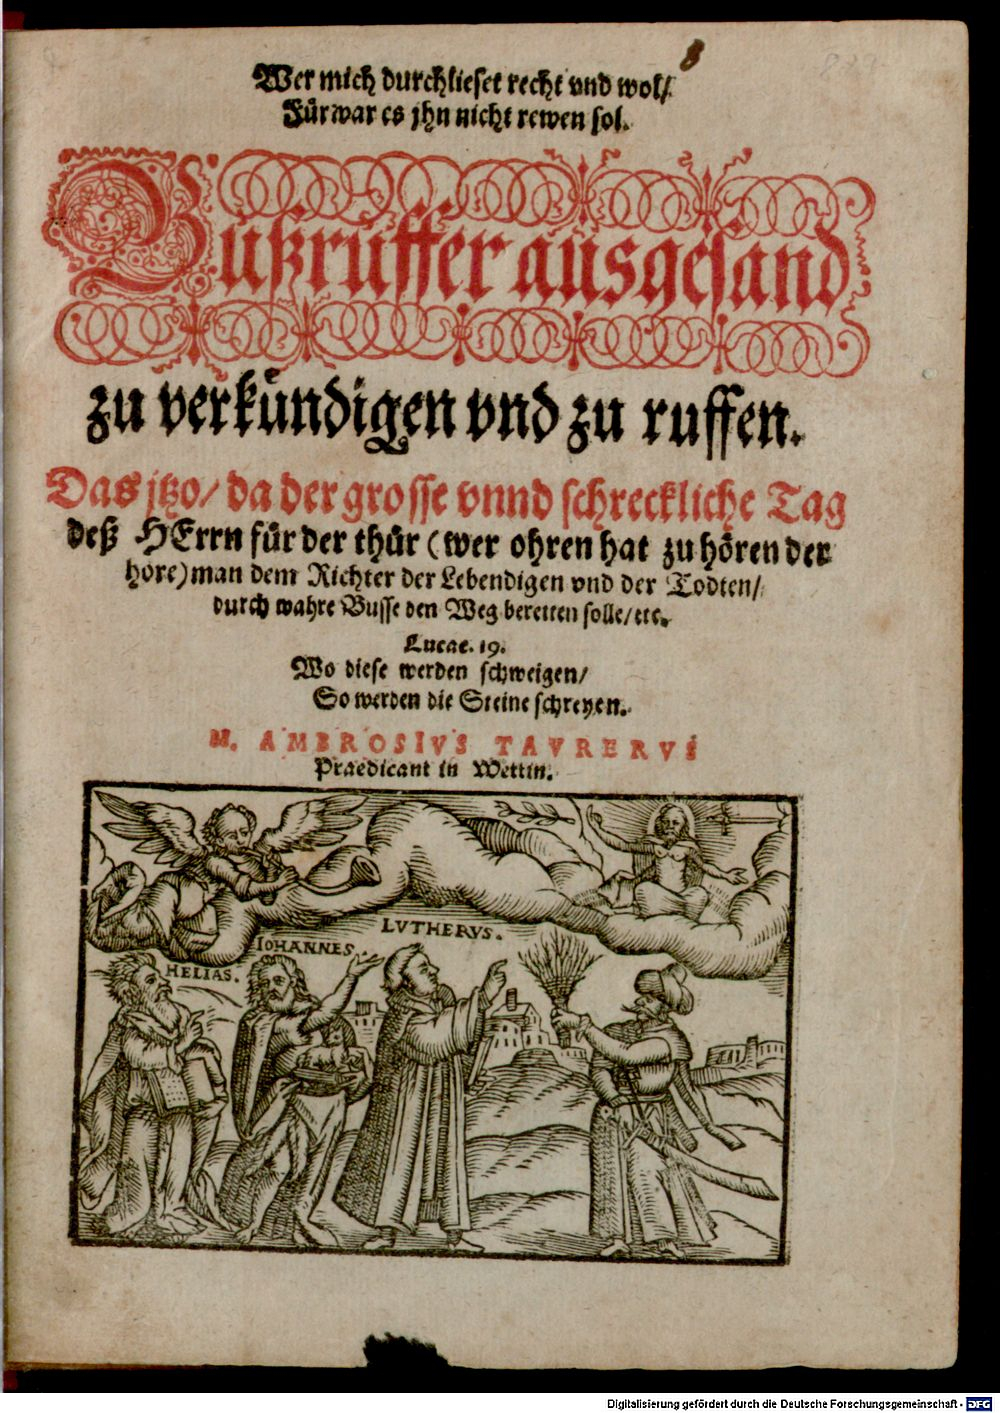 Wer mich durchlieset recht vnd wol/
Fürwar es jhn nicht rewen sol.
Bußruffer ausgesand
zu verkündigen vnd zu ruffen.
Das jtzo/ da der grosse vnnd schreckliche Tag
deß HErrn für der thür (wer ohren hat zu hören der
höre) man dem Richter der Lebendigen vnd der Todten/
durch wahre Busse den Weg bereiten solle/ etc.
Lucae. 19.
Wo diese werden schweigen/
So werden die Steine schreyen.
M. AMBROSIVS TAVRERVS
Praedicant in Wettin.
LVTHERVS.
IOHANNES.
HELIAS.
Digitalisierung gefördert durch die Deutsche Forschungsgemeinschaft - DFG